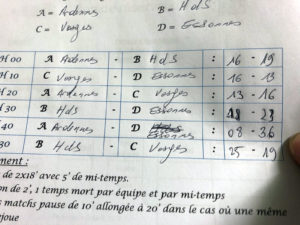 A = Ardennes B = HdS
C = Vosges D = Essonnes
H 00 A Ardennes - B HdS : 16 - 19
H 10 C Vosges - D Essonnes : 16 - 13
H 20 A Ardennes - C Vosges : 13 - 16
H 30 B HdS - D Essonnes :
40 A Ardennes - D Essonnes : 08 - 36
30 B HdS - C Vosges : 25 - 19
ment :
de 2x18' avec 5' de mi-temps.
on de 2', 1 temps mort par équipe et par mi-temps
s matchs pause de 10' allongée à 20' dans le cas où une même
ejoue